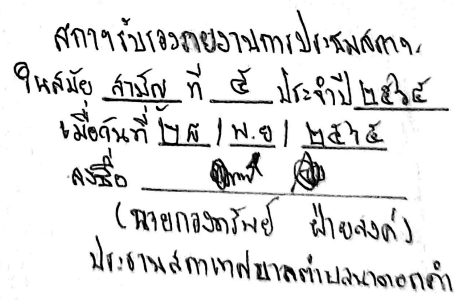 สภาฯรับรองรายงานการประชุมสภาฯ
ในสมัย สามัญ ที่ ๔ ประจำปี ๒๕๖๕
เมื่อวันที่ ๒๘ / พ.ย / ๒๕๖๕
ลงชื่อ
(นายกองทรัพย์ ฝ่ายสงค์)
ประธานสภาเทศบาลตำบลนาดอกคำ